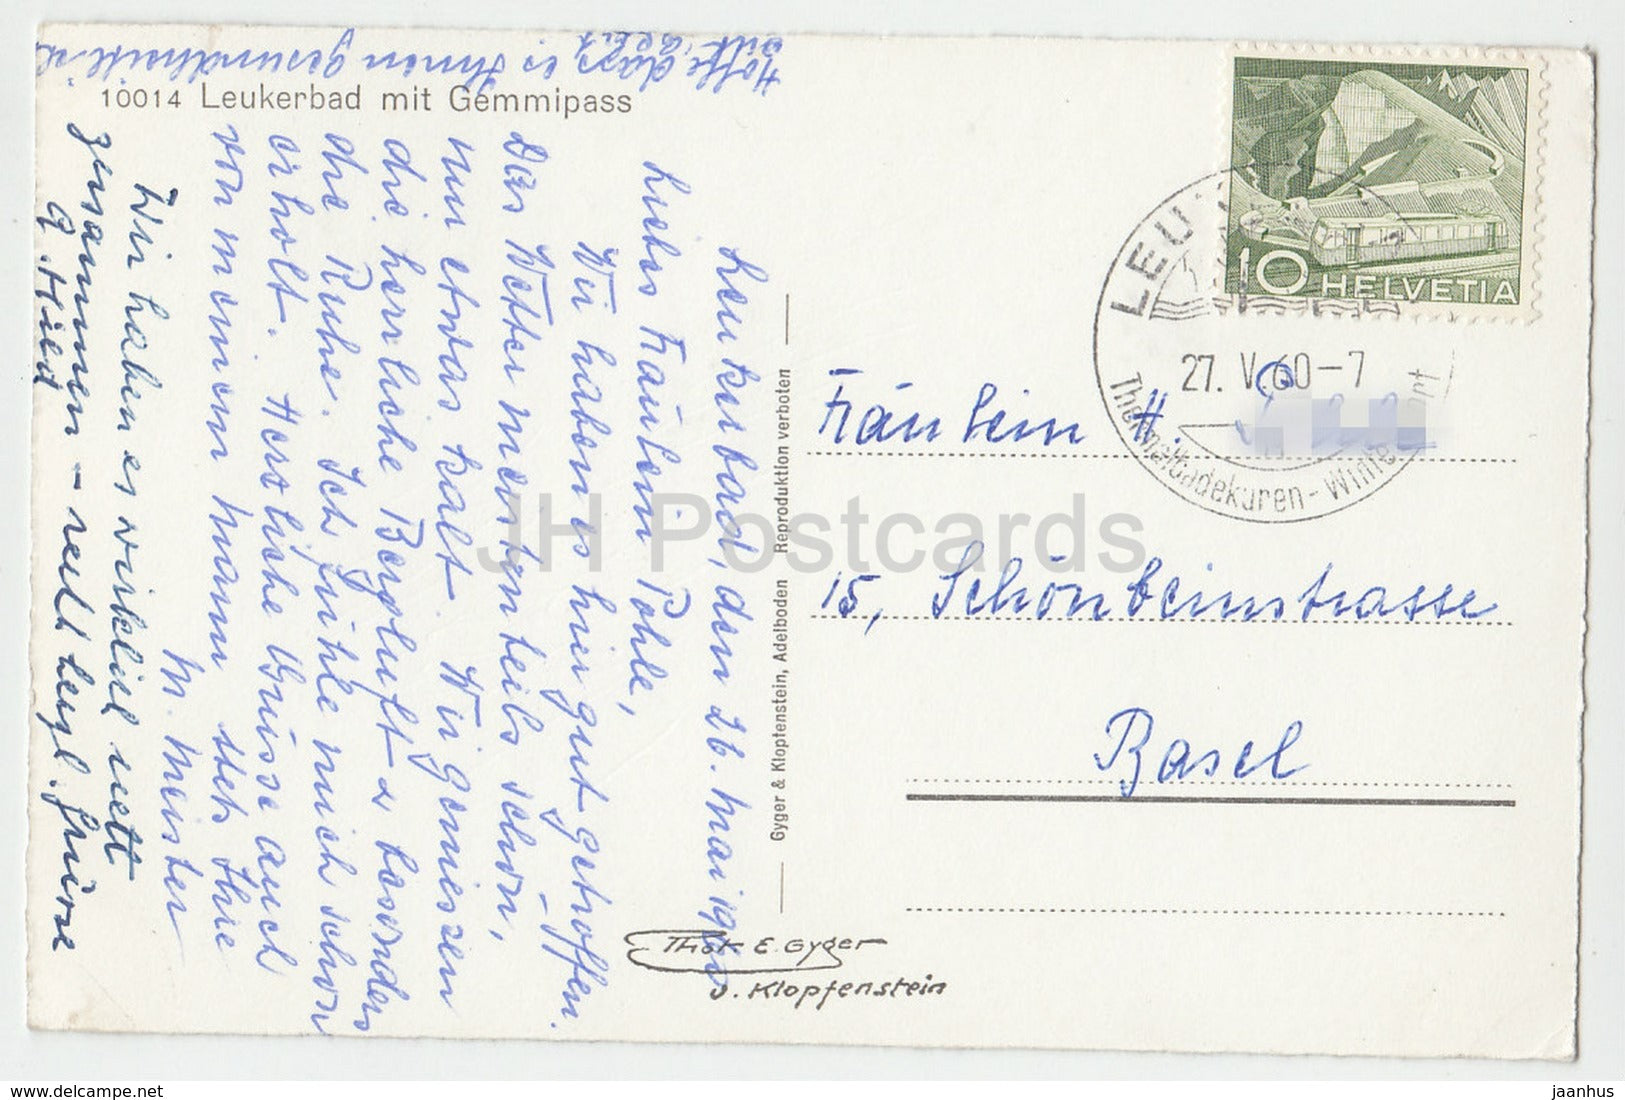 Hoffe dass es Ihnen gesundheitlich
gut geht
10014 Leukerbad mit Gemmipass
Leukerbad, den 26. Mai 1960
Liebes Fräulein Pohle,
Wir haben es hier gut getroffen.
Das Wetter meistenteils schön,
nur etwas kalt. Wir geniessen
die herrliche Bergluft u. besonders
die Ruhe. Ich fühle mich schon
erholt. Herzliche Grüsse auch
von meinem Mann stets Ihre
M. Meister
Wir haben es wirklich nett
zusammen - recht herzl. Grüsse
A. Hild
Gyger & Klopfenstein, Adelboden Reproduktion verboten
Phot E. Gyger
J. Klopfenstein
10 HELVETIA
27. V. 60-7
Thermalbadekuren -
Fräulein H.
15, Schönbeinstrasse
Basel
JH Postcards
eu.hippostcard.com
jaanhus